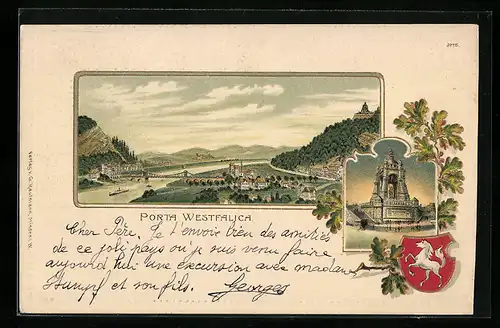 2075.
PORTA WESTFALICA
Cher Père, Je t'envoie bien des amitiés
de ce joli pays où je suis venu faire
aujourd'hui une excursion avec madame
Stumpf et son fils. Georges